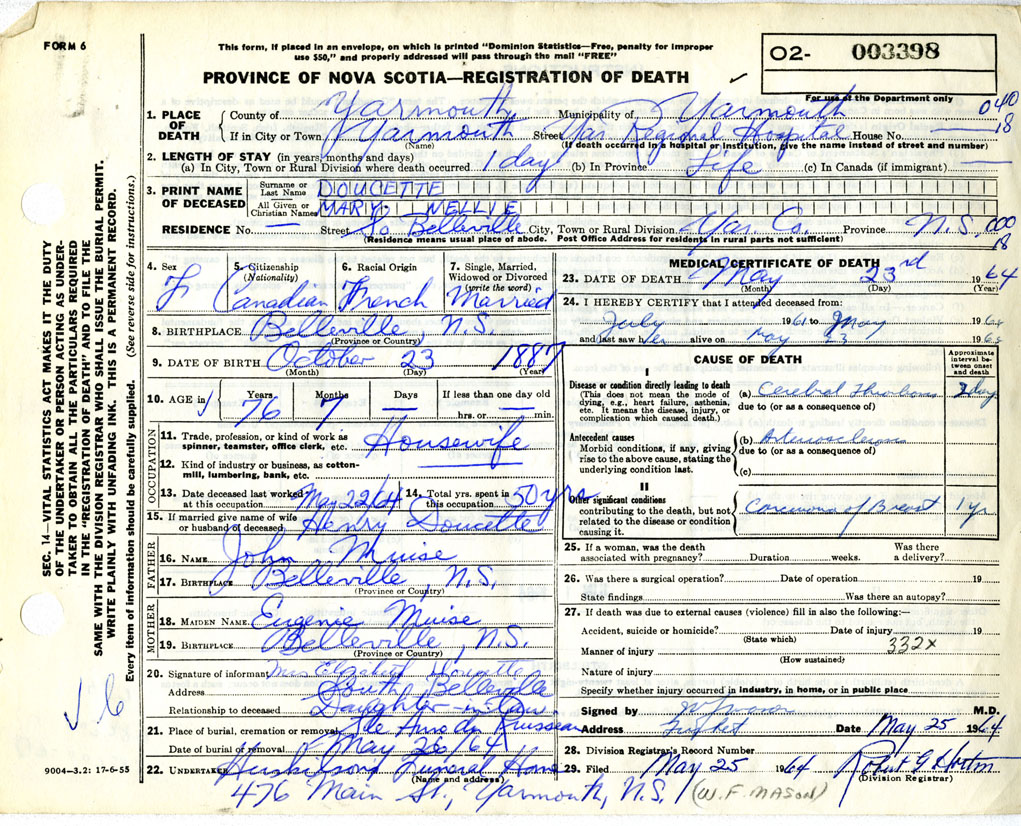 FORM 6
This form, if placed in an envelope, on which is printed "Dominion Statistics—Free, penalty for improper
use $50," and properly addressed will pass through the mail "FREE"
PROVINCE OF NOVA SCOTIA—REGISTRATION OF DEATH
02- 003398
For use of the Department only
040
18
1. PLACE OF DEATH { County of Yarmouth Municipality of Yarmouth
If in City or Town Yarmouth Street Yar Regional Hospital House No.
(Name) (If death occurred in a hospital or institution, give the name instead of street and number)
2. LENGTH OF STAY (in years, months and days)
(a) In City, Town or Rural Division where death occurred 1 day (b) In Province Life (c) In Canada (if immigrant) —
3. PRINT NAME OF DECEASED
Surname or Last Name DOUCETTE
All Given or Christian Names MARY NELLIE
RESIDENCE No. — Street So Belleville City, Town or Rural Division Yar. Co. Province N.S. 000
18
(Residence means usual place of abode. Post Office Address for residents in rural parts not sufficient)
4. Sex 5. Citizenship (Nationality) 6. Racial Origin 7. Single, Married, Widowed or Divorced (write the word)
F Canadian French Married
8. BIRTHPLACE Belleville, N.S.
(Province or Country)
9. DATE OF BIRTH October 23 1887
(Month) (Day) (Year)
10. AGE in Years Months Days If less than one day old
76 7 — — hrs. or — min.
OCCUPATION
11. Trade, profession, or kind of work as spinner, teamster, office clerk, etc. Housewife
12. Kind of industry or business, as cotton-mill, lumbering, bank, etc.
13. Date deceased last worked at this occupation May 22/64 14. Total yrs. spent in this occupation 50 yrs
15. If married give name of wife or husband of deceased Henry Doucette
FATHER
16. NAME John Muise
17. BIRTHPLACE Belleville, N.S.
(Province or Country)
MOTHER
18. MAIDEN NAME Eugenie Muise
19. BIRTHPLACE Belleville, N.S.
(Province or Country)
20. Signature of informant Mrs Elizabeth Doucette
Address South Belleville
Relationship to deceased Daughter-in-law
21. Place of burial, cremation or removal Ste Anne du Ruisseau
Date of burial or removal May 26/64
22. UNDERTAKER Huskilson's Funeral Home
(Name and address)
476 Main St., Yarmouth, N.S. (W. F. MASON)
MEDICAL CERTIFICATE OF DEATH
23. DATE OF DEATH May 23rd 1964
(Month) (Day) (Year)
24. I HEREBY CERTIFY that I attended deceased from:
July 1961 to May 196
and last saw her alive on May 23 196
CAUSE OF DEATH
Approximate interval between onset and death
I
Disease or condition directly leading to death
(This does not mean the mode of dying, e.g., heart failure, asthenia, etc. It means the disease, injury, or complication which caused death.)
(a) Cerebral Thrombosis day
due to (or as a consequence of)
Antecedent causes
Morbid conditions, if any, giving rise to the above cause, stating the underlying condition last.
(b) Arteriosclerosis
due to (or as a consequence of)
(c)
II
Other significant conditions
contributing to the death, but not related to the disease or condition causing it.
Carcinoma of Breast 1 yr.
25. If a woman, was the death associated with pregnancy? Duration weeks. Was there a delivery?
26. Was there a surgical operation? Date of operation 19
State findings Was there an autopsy?
27. If death was due to external causes (violence) fill in also the following:—
Accident, suicide or homicide? Date of injury 19
(State which)
Manner of injury 332X
(How sustained)
Nature of injury
Specify whether injury occurred in industry, in home, or in public place
Signed by M.D.
Address Date May 25 1964
28. Division Registrar's Record Number
29. Filed May 25 1964 Robert G
(Division Registrar)
SEC. 14—VITAL STATISTICS ACT MAKES IT THE DUTY
OF THE UNDERTAKER OR PERSON ACTING AS UNDER-
TAKER TO OBTAIN ALL THE PARTICULARS REQUIRED
IN THE "REGISTRATION OF DEATH" AND TO FILE THE
SAME WITH THE DIVISION REGISTRAR WHO SHALL ISSUE THE BURIAL PERMIT.
WRITE PLAINLY WITH UNFADING INK. THIS IS A PERMANENT RECORD.
Every item of information should be carefully supplied. (See reverse side for instructions.)
9004-3.2: 17-6-55